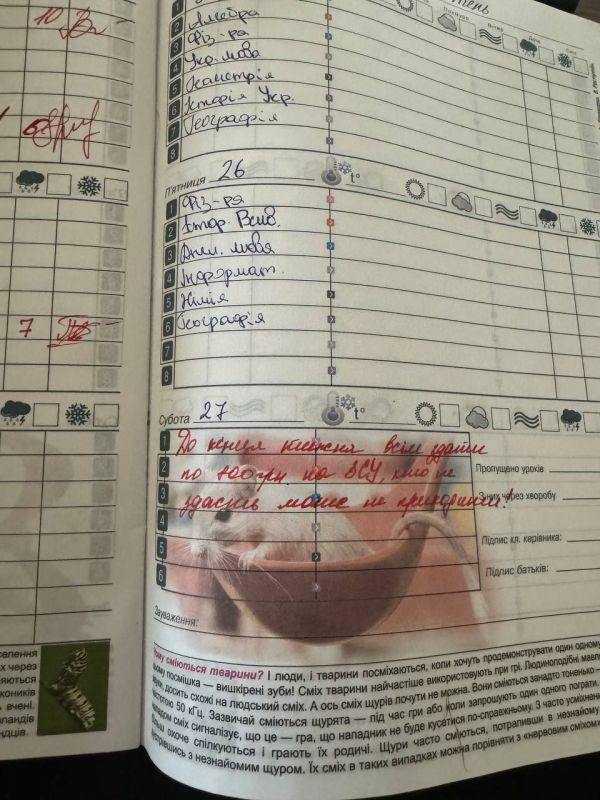 10
6
7
1
2 Алгебра
3 Фіз-ра
4 Укр. мова
5 Геометрія
6 Історія Укр.
7 Географія
8
П'ятниця 26
t°
1 Фіз-ра
2 Істор. Вссв.
3 Англ. мова
4 Інформат.
5 Хімія
6 Географія
7
8
Субота 27
t°
1 До кінця тижня всім здати
2 по 100грн на ЗСУ, хто не
3 здасть може не приходити!
4
5
6
Пропущено уроків
З них через хворобу
Підпис кл. керівника:
Підпис батьків:
Зауваження:
сміються тварини? І люди, і тварини посміхаються, коли хочуть продемонструвати один одному
посмішка — вишкірені зуби! Сміх тварини найчастіше використовують при грі. Людиноподібні мавпи
досить схожі на людський сміх. А ось сміх щурів почути не можна. Вони сміються занадто тоненько
частотою 50 кГц. Зазвичай сміються щурята — під час гри або коли запрошують один одного пограти.
сміх сигналізує, що це — гра, що нападник не буде кусатися по-справжньому. З часто усміхненими
охоче спілкуються і грають їх родичі. Щури часто сміються, потрапивши в незнайому
зустрівшись з незнайомим щуром. Їх сміх в таких випадках можна порівняти з «нервовим сміхом»